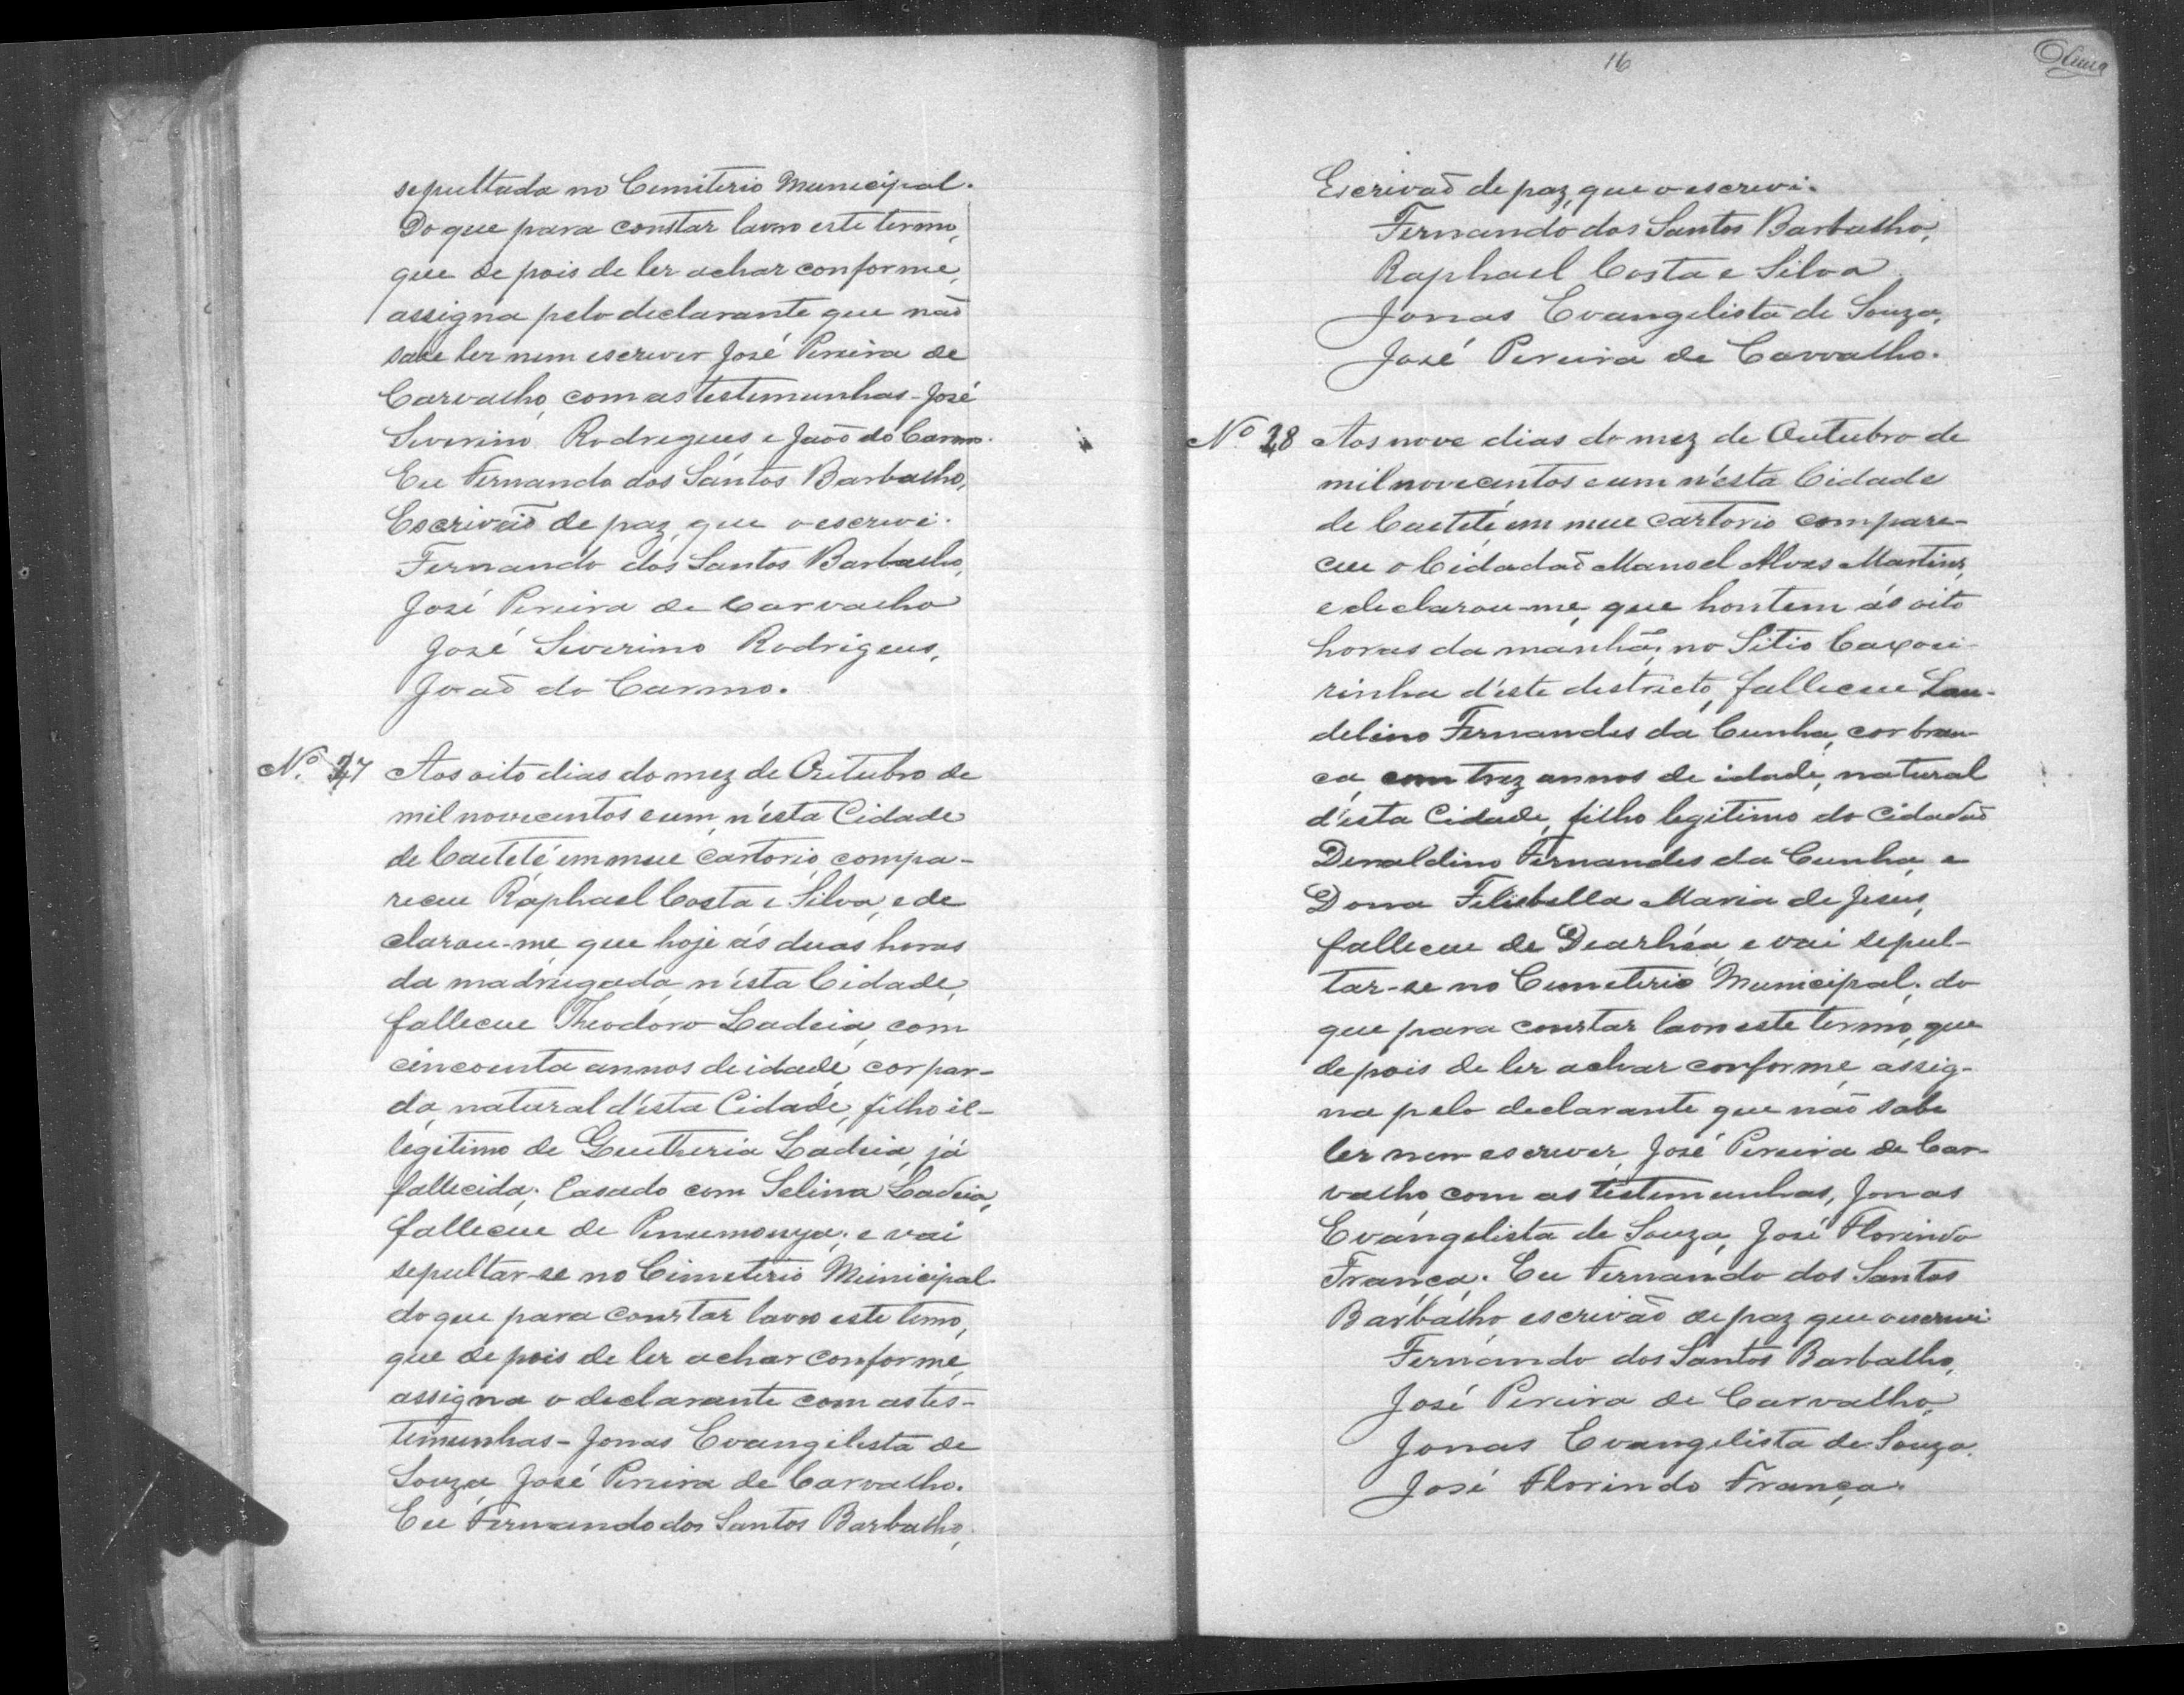 sepultada no Cemiterio Municipal.
Do que para constar lavro este termo,
que depois de ler achar conforme,
assigna pelo declarante que não
sabe ler nem escrever José Pereira de
Carvalho, com as testemunhas - José
Siverino Rodrigues e João do Carmo.
Eu Fernando dos Santos Barbalho,
Escrivão de paz, que o escrevi.
Fernando dos Santos Barbalho,
José Pereira de Carvalho
José Siverino Rodrigues,
João do Carmo.
Nº 27 Aos oito dias do mez de Outubro de
mil novecentos e um, n'esta Cidade
de Caeteté em meu Cartorio, compa-
receu Raphael Costa e Silva, e de
clarou-me que hoje ás duas horas
da madrugada n'esta Cidade,
falleceu Theodoro Ladeia, com
cincoenta annos de idade, cor par-
da, natural d'esta Cidade, filho il-
legitimo de Ladeia, já
fallecida; Casado com Selina Ladeia,
falleceu de Pneumonya; e vai
sepultar-se no Cimeterio Municipal
do que para constar lavro este termo,
que depois de ler achar conforme,
assigna o declarante com as tes-
temunhas - Jonas Evangelista de
Souza, José Pereira de Carvalho.
Eu Fernando dos Santos Barbalho,
16
Escrivão de paz, que o escrevi.
Fernando dos Santos Barbalho,
Raphael Costa e Silva
Jonas Evangelista de Souza,
José Pereira de Carvalho.
Nº 28 Aos nove dias do mez de Outubro de
mil novecentos e um n'esta Cidade
de Caeteté, em meu cartorio compare-
ceu o Cidadão Manoel Alves Martins,
e declarou-me, que hontem ás oito
horas da manhã, no Sitio Caxoei-
rinha d'este districto, falleceu Lau-
delino Fernandes da Cunha, cor bran-
ca, com trez annos de idade, natural
d'esta Cidade, filho legitimo do Cidadão
Deraldino Fernandes da Cunha, e
Dona Filisbella Maria de Jesus,
falleceu de Diarhéa, e vai sepul-
tar-se no Cemeterio Municipal; do
que para constar lavro este termo, que
depois de ler achar conforme, assig-
na pelo declarante que não sabe
ler nem escrever, José Pereira de Car-
valho, com as testemunhas, Jonas
Evangelista de Souza, José Florindo
França. Eu Fernando dos Santos
Barbalho escrivão de paz que o escrevi.
Fernando dos Santos Barbalho,
José Pereira de Carvalho,
Jonas Evangelista de Souza.
José Florindo França.